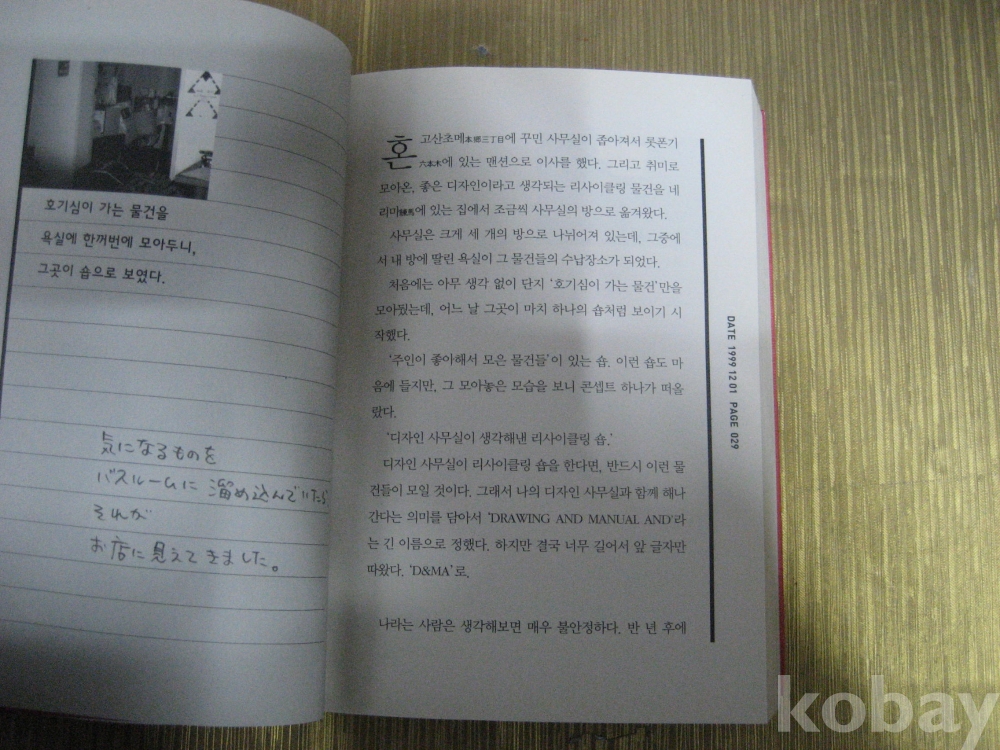 호기심이 가는 물건을
욕실에 한꺼번에 모아두니,
그곳이 숍으로 보였다.
気になるものを
バスルームに 溜め込んでいたら
それが
お店に見えてきました。
혼고산초메本郷三丁目에 꾸민 사무실이 좁아져서 롯폰기
六本木에 있는 맨션으로 이사를 했다. 그리고 취미로
모아온, 좋은 디자인이라고 생각되는 리사이클링 물건을 네
리마練馬에 있는 집에서 조금씩 사무실의 방으로 옮겨왔다.
사무실은 크게 세 개의 방으로 나뉘어져 있는데, 그중에
서 내 방에 딸린 욕실이 그 물건들의 수납장소가 되었다.
처음에는 아무 생각 없이 단지 ‘호기심이 가는 물건’만을
모아뒀는데, 어느 날 그곳이 마치 하나의 숍처럼 보이기 시
작했다.
‘주인이 좋아해서 모은 물건들’이 있는 숍. 이런 숍도 마
음에 들지만, 그 모아놓은 모습을 보니 콘셉트 하나가 떠올
랐다.
‘디자인 사무실이 생각해낸 리사이클링 숍.’
디자인 사무실이 리사이클링 숍을 한다면, 반드시 이런 물
건들이 모일 것이다. 그래서 나의 디자인 사무실과 함께 해나
간다는 의미를 담아서 ‘DRAWING AND MANUAL AND’라
는 긴 이름으로 정했다. 하지만 결국 너무 길어서 앞 글자만
따왔다. ‘D&MA’로.
나라는 사람은 생각해보면 매우 불안정하다. 반 년 후에
DATE 1999 12 01 PAGE 029
kobay